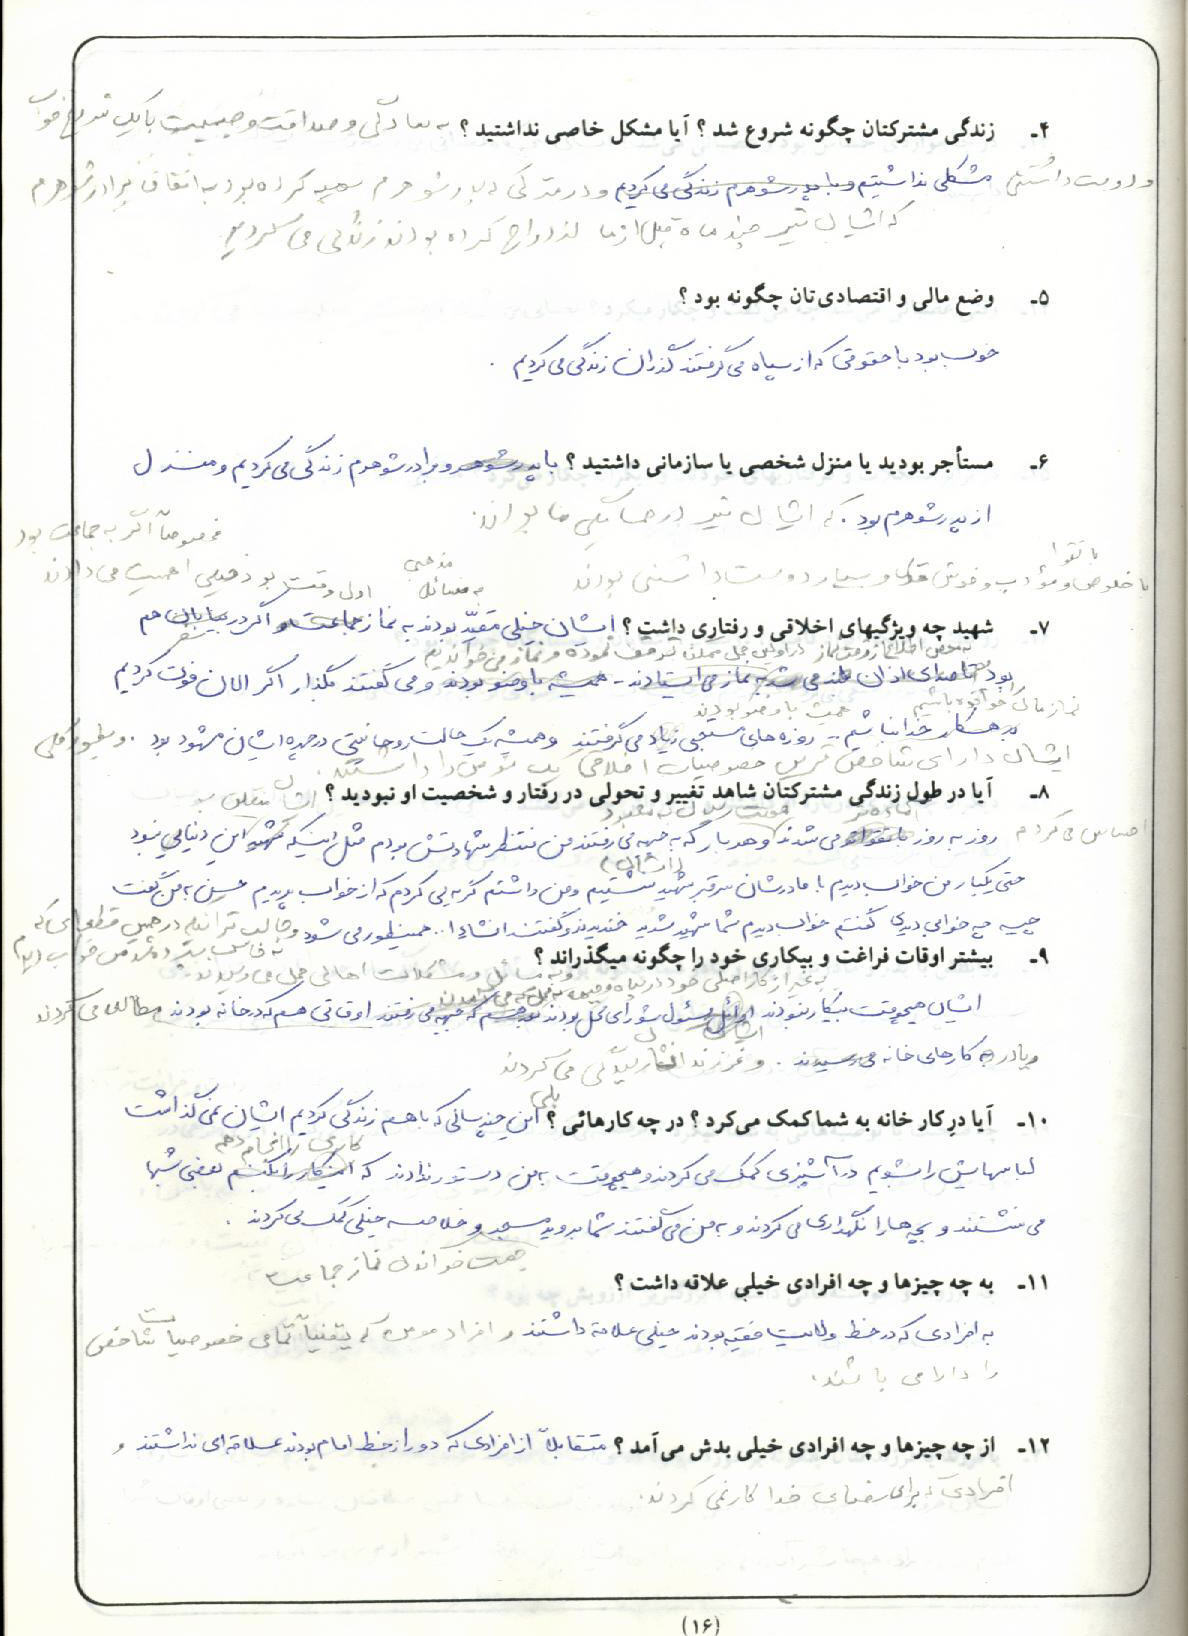 ۴ـ زندگی مشترکتان چگونه شروع شد ؟ آیا مشکل خاصی نداشتید ؟ به سادگی و صداقت و صمیمیت با یک شروع خوب
و دوست داشتنی مشکلی نداشتیم و با پدر شوهرم زندگی می کردیم و در منزلی که پدر شوهرم تهیه کرده بود به اتفاق برادر شوهرم
که ایشان نیز چند ماه قبل از ما ازدواج کرده بودند زندگی می کردیم
۵ـ وضع مالی و اقتصادی‌تان چگونه بود ؟
خوب بود با حقوقی که از سپاه می گرفتند گذران زندگی می کردیم .
۶ـ مستأجر بودید یا منزل شخصی یا سازمانی داشتید ؟ با پدر شوهر و برادر شوهرم زندگی می کردیم و منزل
از پدر شوهرم بود . که ایشان نیز در همسایگی ما بودند .
مخصوصاً اگر به جماعت بود
با تقوا
با خلوص و مؤدب و خوش قول و بسیار دوست داشتنی بودند به مسائل مذهبی اول وقت بود خیلی اهمیت می دادند
۷ـ شهید چه ویژگیهای اخلاقی و رفتاری داشت ؟ ایشان خیلی مقید بودند به نماز جماعت و اگر در بیابان هم
بود تا صدای اذان بلند می شد به نماز می ایستادند ـ همیشه با وضو بودند و می گفتند بگذار اگر الان فوت کردیم
همیشه با وضو بودند
بدهکار خدا نباشیم .. روزه های مستحبی زیاد می گرفتند و همیشه یک حالت روحانیتی در چهره ایشان مشهود بود . و بطور کلی
ایشان دارای شاخص ترین خصوصیات اخلاقی یک مؤمن را داشتند .
۸ـ آیا در طول زندگی مشترکتان شاهد تغییر و تحولی در رفتار و شخصیت او نبودید ؟
احساس می کردم روز به روز با تقواتر می شدند و هر بار که به جبهه می رفتند من منتظر شهادتش بودم مثل اینکه این دنیایی نبود
حتی یکبار من خواب دیدم با مادرشان سر قبر شهید نشستیم و من داشتم گریه می کردم که از خواب پریدم حسین به من گفت
چیه چه خوابی دیدی گفتم خواب دیدم شما شهید شدید خندیدند و گفتند انشاءا... همینطور می شود و جالب تر آنکه در همین قطعه ای که
۹ـ بیشتر اوقات فراغت و بیکاری خود را چگونه میگذراند ؟
به غیر از کار اصلی خود در سپاه و جبهه
ایشان هیچوقت بیکار نبودند اوائل مسئول شورای محل بودند بعد هم که جبهه می رفتند اوقاتی هم که در خانه بودند مطالعه می کردند
و یا در به کارهای خانه می رسیدند . و فرزندانشان رسیدگی می کردند
۱۰ـ آیا در کار خانه به شما کمک می‌کرد ؟ در چه کارهائی ؟ بلی این چند سالی که با هم زندگی کردیم ایشان نمی گذاشت
کاری را انجام دهم
لباسهایش را بشویم در آشپزی کمک می کردند و هیچوقت به من دستور ندادند که این کار را بکنم بعضی شبها
می نشستند و بچه ها را نگهداری می کردند و به من می گفتند شما بروید مسجد و خلاصه خیلی کمک می کردند .
جهت خواندن نماز جماعت
۱۱ـ به چه چیزها و چه افرادی خیلی علاقه داشت ؟
به افرادی که در خط ولایت فقیه بودند خیلی علاقه داشتند و افراد مومن که یقیناً تمامی خصوصیات شاخص
را دارا می باشند .
۱۲ـ از چه چیزها و چه افرادی خیلی بدش می‌آمد ؟ متقابلاً از افرادی که دور از خط امام بودند علاقه ای نداشتند و
افرادی که برای رضای خدا کار نمی کردند .
(۱۶)